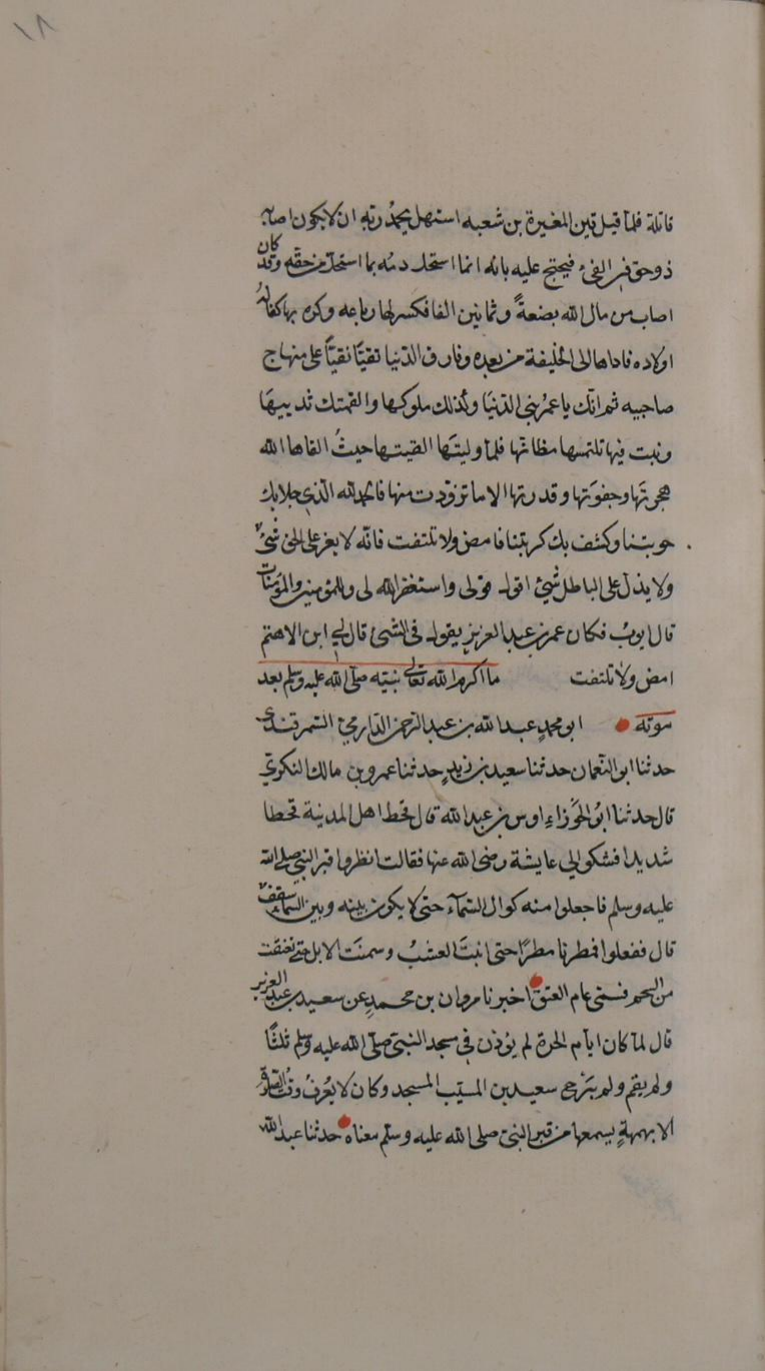 ١٨
قاتله فلما قيل قين المغيرة بن شعبه استهل يحمد ربه ان لا يكون اصابه
ذو حق فى الفىء فيحتج عليه بانه انما استحل دمه بما استحل من حقه وقد كان
اصاب من مال الله بضعةً وثمانين الفا فكسر لها رباعه وكره بها كفالة
اولاده فاداها الى الخليفة من بعده وفارق الدنيا تقيًا نقيًا على منهاج
صاحبيه ثم انك يا عمر بنى الدنيا ولدتك ملوكها والقمتك ثدييها
ونبت فيها تلتمسها مظانها فلما وليتها القيتها حيثُ القاها الله
هجرتها وجفوتها وقدرتها الا ما تزودت منها فالحمد لله الذى جلا بك
حوبتنا وكشف بك كربتنا فامض ولا تلتفت فانه لا يعز على الحق شىء
ولا يذل على الباطل شىء اقول قولى واستغفر الله لى وللمؤمنين والمؤمنات
قال ايوب فكان عمر بن عبد العزيز يقول فى الشىء قال لى ابن الاهتم
امض ولا تلتفت ما اكرم الله تعالى نبيه صلى الله عليه وسلم بعد
موته ابو محمد عبد الله بن عبد الرحمن الدارمى السمرقندى
حدثنا ابو النعمان حدثنا سعيد بن زيد حدثنا عمرو بن مالك النكرى
قال حدثنا ابو الجوزاء اوس بن عبد الله قال قحط اهل المدينة قحطا
شديدا فشكوا الى عايشة رضى الله عنها فقالت انظروا قبر النبى صلى الله
عليه وسلم فاجعلوا منه كوا الى السماء حتى لا يكون بينه وبين السماء سقف
قال ففعلوا فمطرنا مطرًا حتى انبت العشب وسمنت الابل حتى تفتقت
من الشحم فسمى عام الفتق اخبرنا مروان بن محمد عن سعيد بن عبد العزيز
قال لما كان ايام الحرة لم يؤذن فى مسجد النبى صلى الله عليه وسلم ثلثًا
ولم يقم ولم يبرح سعيد بن المسيب المسجد وكان لا يعرف وقت الصلوة
الا بهمهمة يسمعها من قبر النبى صلى الله عليه وسلم معناه حدثنا عبد الله